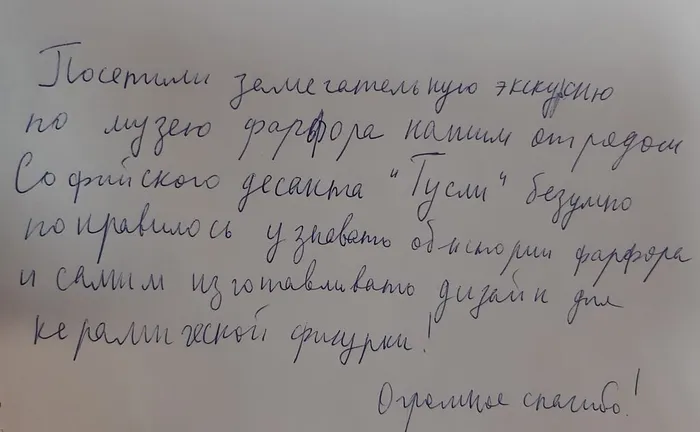 Посетили замечательную экскурсию
по музею фарфора нашим отрядом
Софийского десанта "Гусли" безумно
понравилось узнавать об истории фарфора
и самим изготавливать дизайн для
керамической фигурки!
Огромное спасибо!